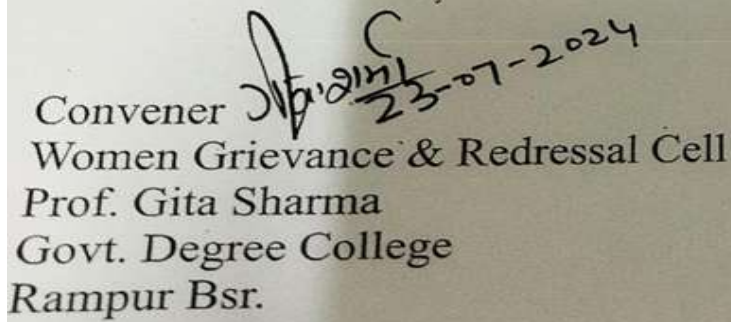 23-07-2024
Convener
Women Grievance & Redressal Cell
Prof. Gita Sharma
Govt. Degree College
Rampur Bsr.